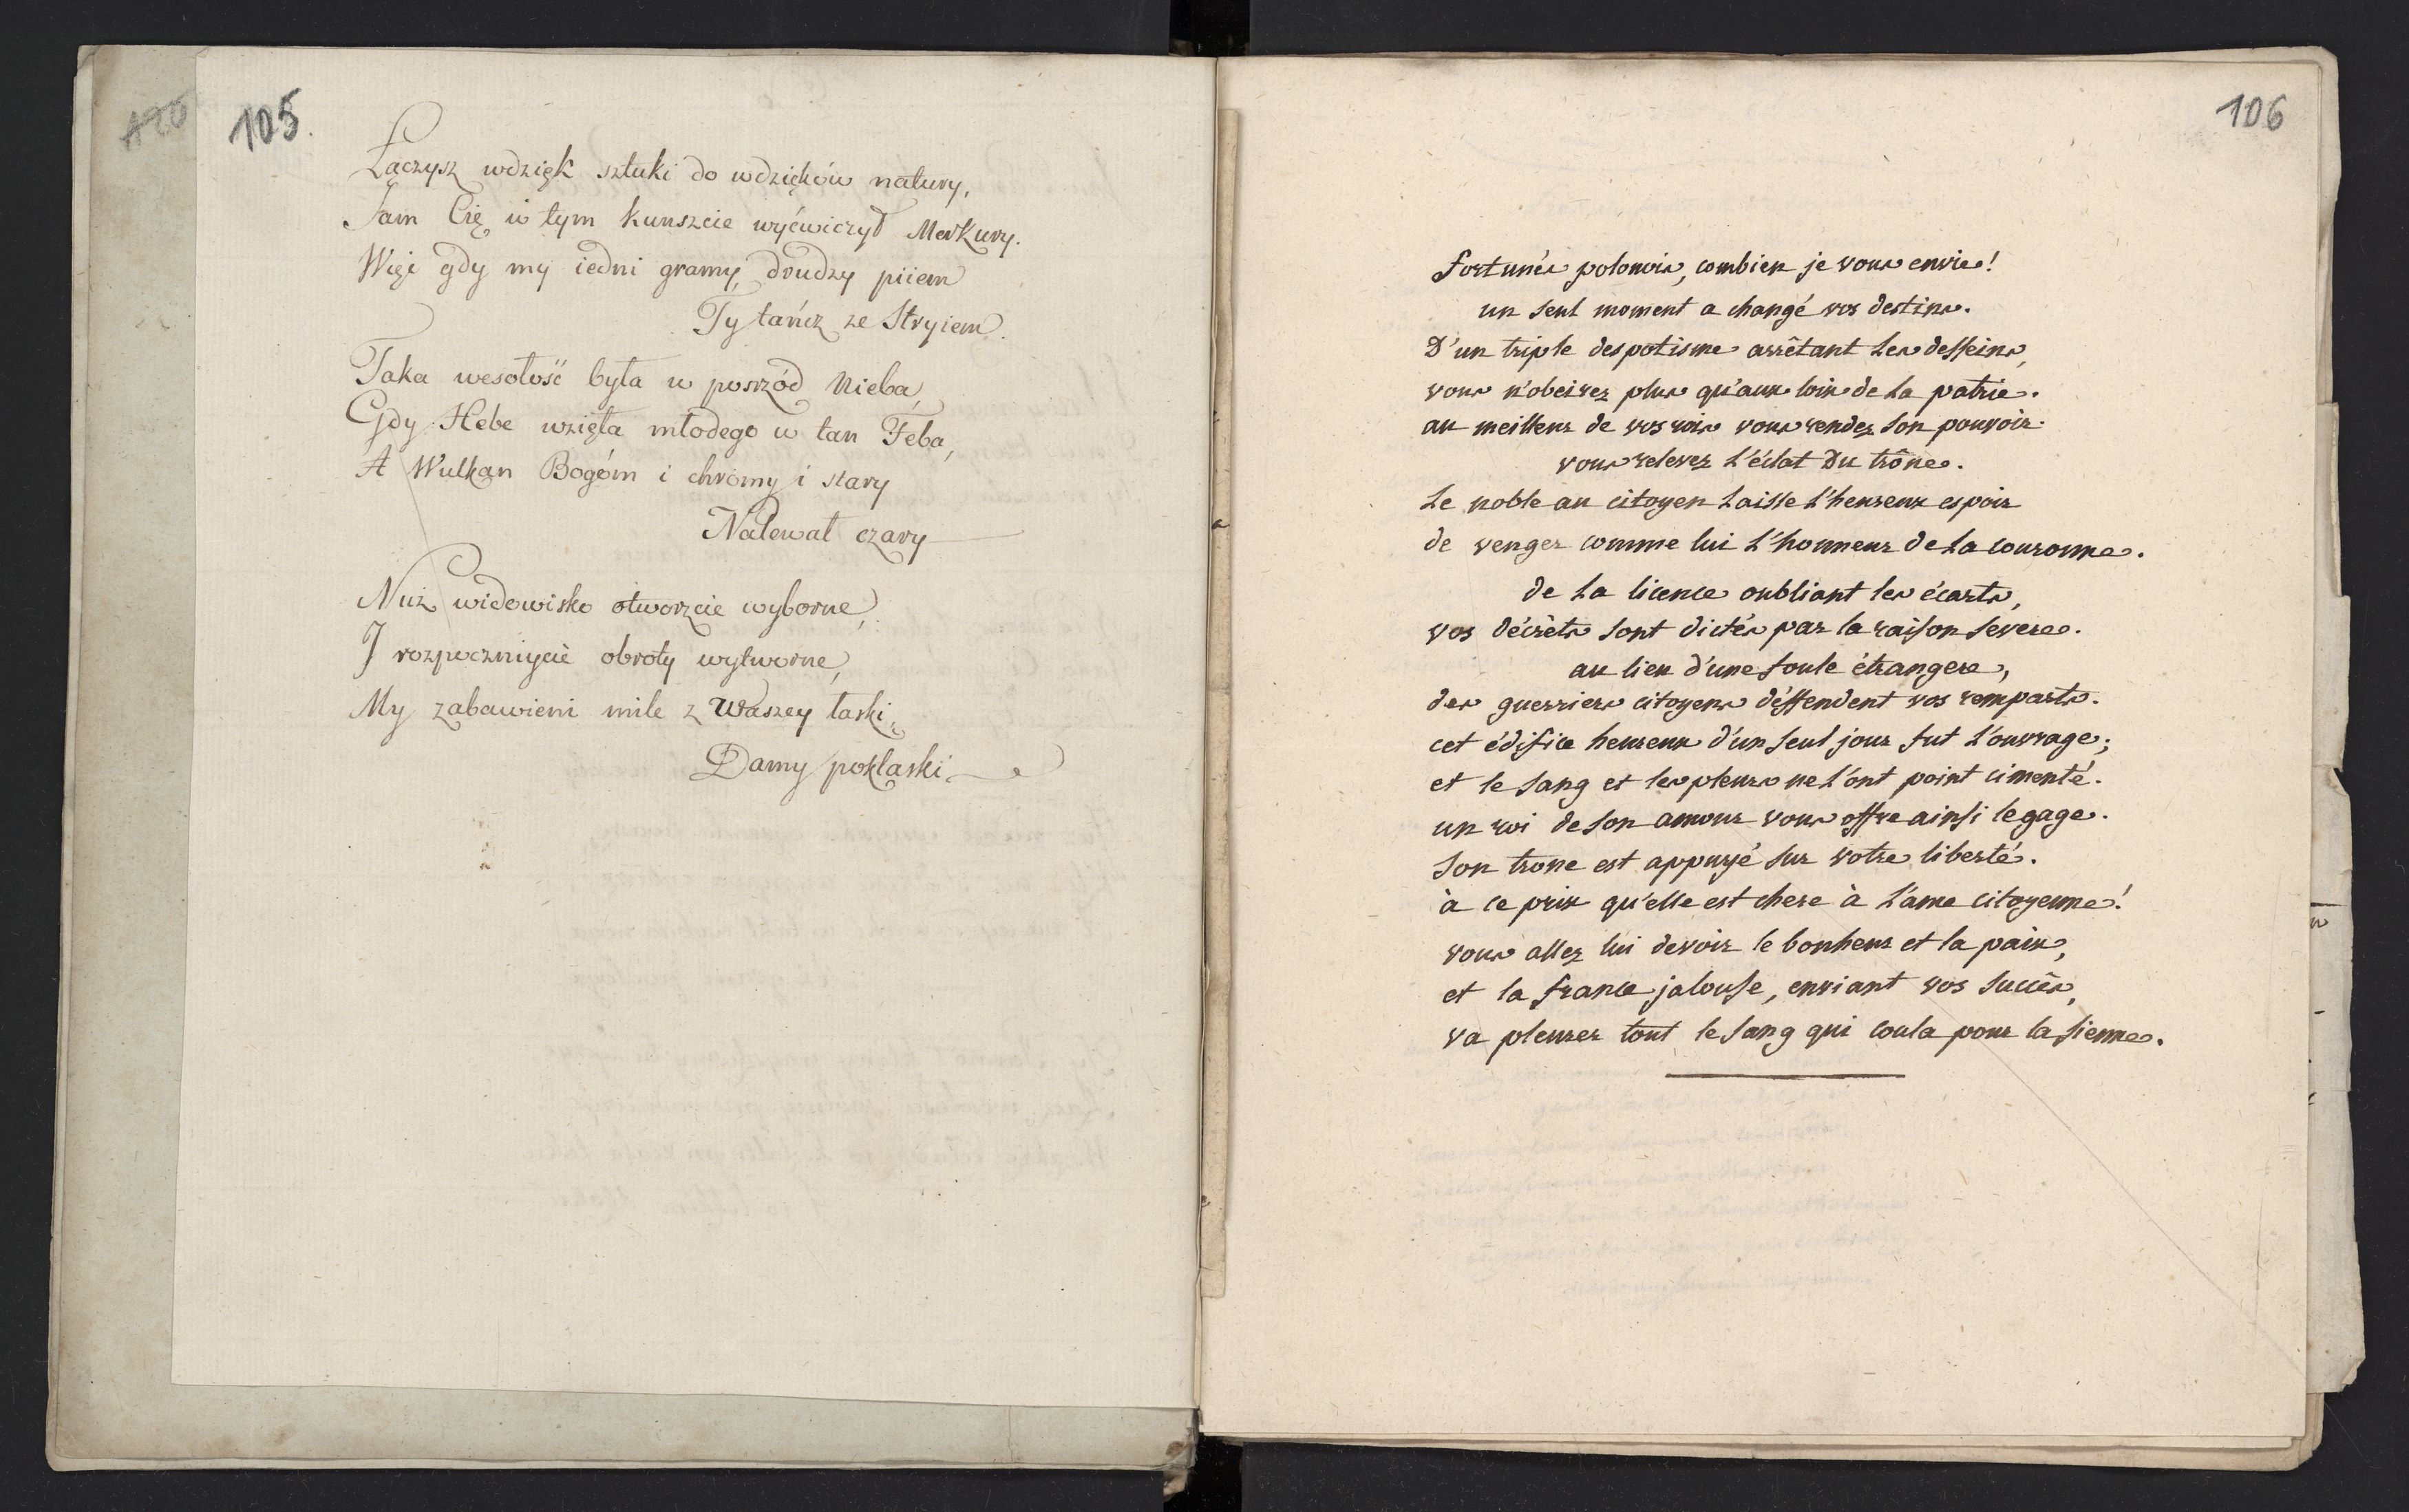 120
105.
Łączysz wdzięk sztuki do wdzięków natury,
Sam Cię w tym kunszcie wyćwiczył Merkury.
Więc gdy my iedni gramy, drudzy piiem
Ty tańcz ze Stryiem.
Taka wesołość była w posrzód Nieba,
Gdy Hebe wzięła młodego w tan Feba,
A Wulkan Bogóm i chromy i stary
Nalewał czary
Nuż widowisko otworzcie wyborne,
J rozpoczniycie obroty wytworne,
My zabawieni mile z Waszey łaski,
Damy poklaski.
106
fortunés polonois, combien je vous envie!
un seul moment a changé vos destins.
D'un triple despotisme arrêtant les desseins,
vous n'obeissez plus qu'aux loix de la patrie.
au meilleur de vos rois vous rendez son pouvoir.
vous relevez l'éclat Du trône.
Le noble au citoyen laisse l'heureux espoir
de venger comme lui l'honneur de la couronne.
de la licence oubliant les écarts,
vos décrèts sont dictés par la raison severe.
au lieu d'une foule étrangere,
des guerriers citoyens déffendent vos remparts.
cet édifice heureux d'un seul jour fut l'ouvrage;
et le sang et les pleurs ne l'ont point cimenté.
un roi de son amour vous offre ainsi le gage.
son trone est appuyé sur votre liberté.
à ce prix qu'elle est chere à l'ame citoyenne!
vous allez lui devoir le bonheur et la paix,
et la france jalouse, enviant vos succès,
va pleurer tout le sang qui coula pour la sienne.